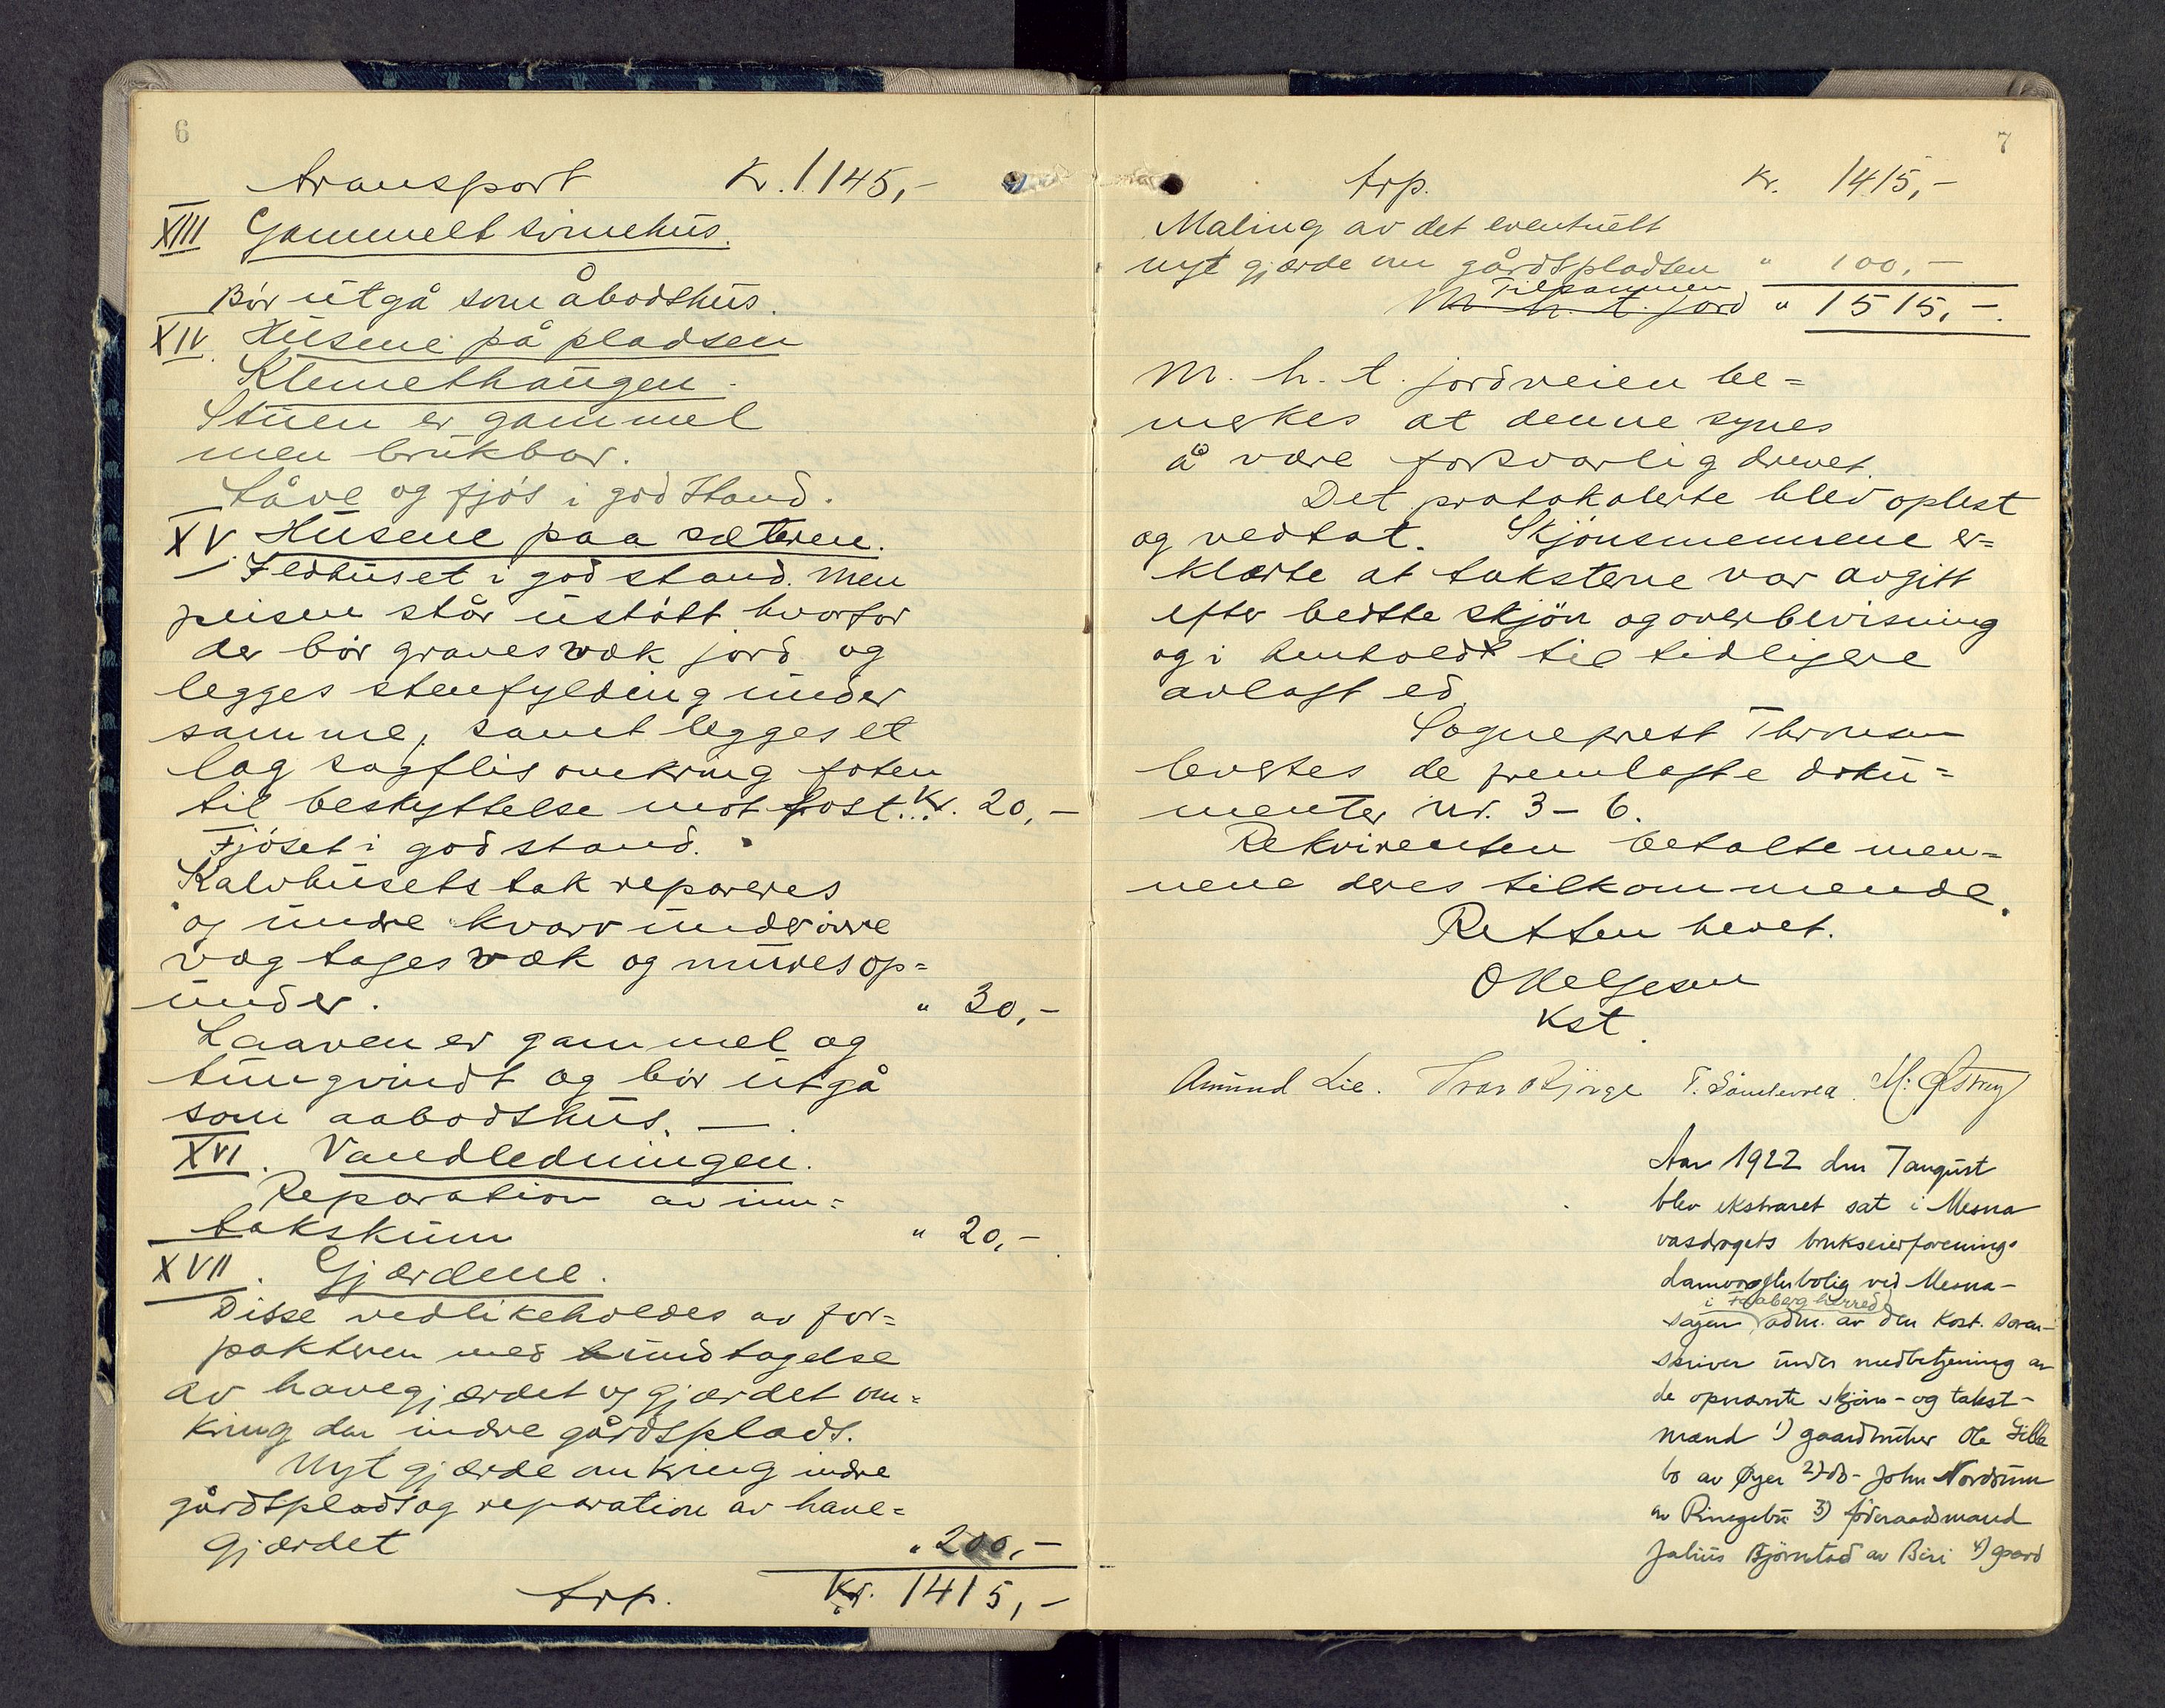 6
transport Kr. 1145,-
XIII Gammelt svinehus.
Bør utgå som åbodshus.
XIV. Husene på pladsen
Klemethaugen.
Stuen er gammel
men brukbar.
Låve og fjøs i god stand.
XV. Husene paa sæteren.
Ildhuset i god stand. Men
peisen står ustøtt hvorfor
der bør graves væk jord og
legges stenfylding under
samme, samt legges et
lag sagflis omkring foten
til beskyttelse mot frost... Kr. 20,-
Fjøset i god stand.
Kalvhusets tak repareres
og undre kvarv under øvre
væg tages væk og mures op=
under. " 30,-
Laaven er gammel og
tungvindt og bør utgå
som aabodshus. —
XVI. Vandledningen.
Reparation av inn=
takskum " 20,-
XVII. Gjærdene.
Disse vedlikeholdes av for=
pakteren med undtagelse
av havegjærdet og gjærdet om=
kring den indre gårdsplads.
Nyt gjærde omkring indre
gårdsplads og reparation av have=
gjærdet " 200,-
trp. Kr. 1415,-
7
trp. Kr. 1415,-
Maling av det eventuelt
nyt gjærde om gårdspladsen " 100,-
Tilsammen
M. h. t. jord " 1515,-.
M. h. t. jordveien be=
merkes at denne synes
å være forsvarlig drevet.
Det protokolerte blev oplest
og vedtat. Skjønsmennene er=
klærte at taksterne var avgitt
efter bedste skjøn og overbevisning
og i henhold til tidligere
avlagt ed.
Sogneprest
levertes de fremlagte doku=
menter nr. 3-6.
Rekvirenten betalte men=
nene deres tilkommende.
Retten hevet.
O Helgesen
Kst.
Amund Lie.
Aar 1922 den 7 august
blev ekstraret sat i Mesna
vasdragets brukseierforenings
damvogterbolig ved Mesna-
i Faaberg herred
sagen adm. av den Kost. soren-
skriver under medbetjening av
de opnævnte skjøns- og takst-
mænd 1) gaardbruker Ole Lille
bo av Øyer 2) do- John Nordrum
av Ringebu 3) føderaadsmand
Julius Bjørnstad av Biri 4) gaard